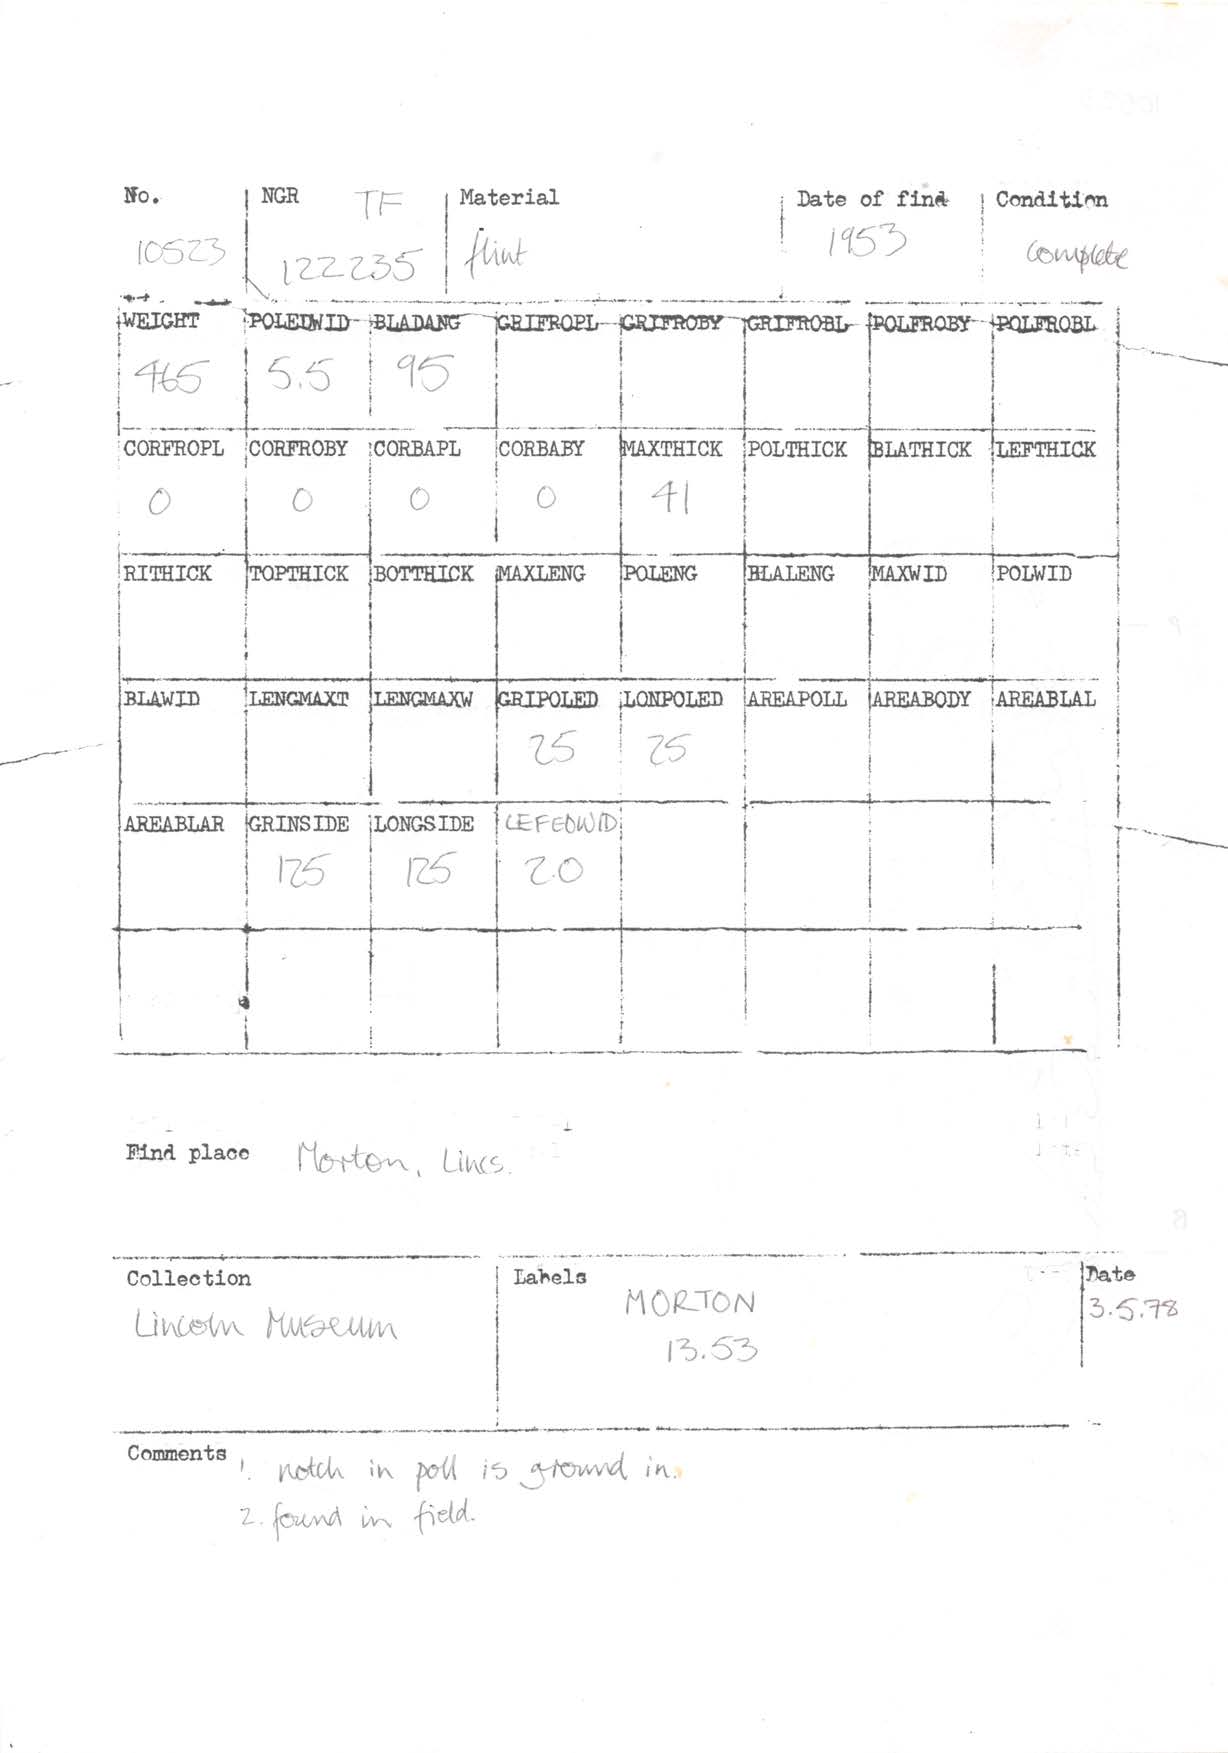 No. NGR TF Material Date of find Condition
10523 122235 flint 1953 complete
WEIGHT POLEDWID BLADANG GRIFROPL GRIFROBY GRIFROBL POLFROBY POLFROBL
465 5.5 95
CORFROPL CORFROBY CORBAPL CORBABY MAXTHICK POLTHICK BLATHICK LEFTHICK
0 0 0 0 41
RITHICK TOPTHICK BOTTHICK MAXLENG POLENG BLALENG MAXWID POLWID
BLAWID LENGMAXT LENGMAXW GRIPOLED LONPOLED AREAPOLL AREABODY AREABLAL
25 25
AREABLAR GRINSIDE LONGSIDE LEFEDWID
125 125 2.0
Find place Morton, Lincs.
Collection Labels Date
Lincoln Museum MORTON 3.5.78
13.53
Comments 1. notch in poll is ground in.
2. found in field.